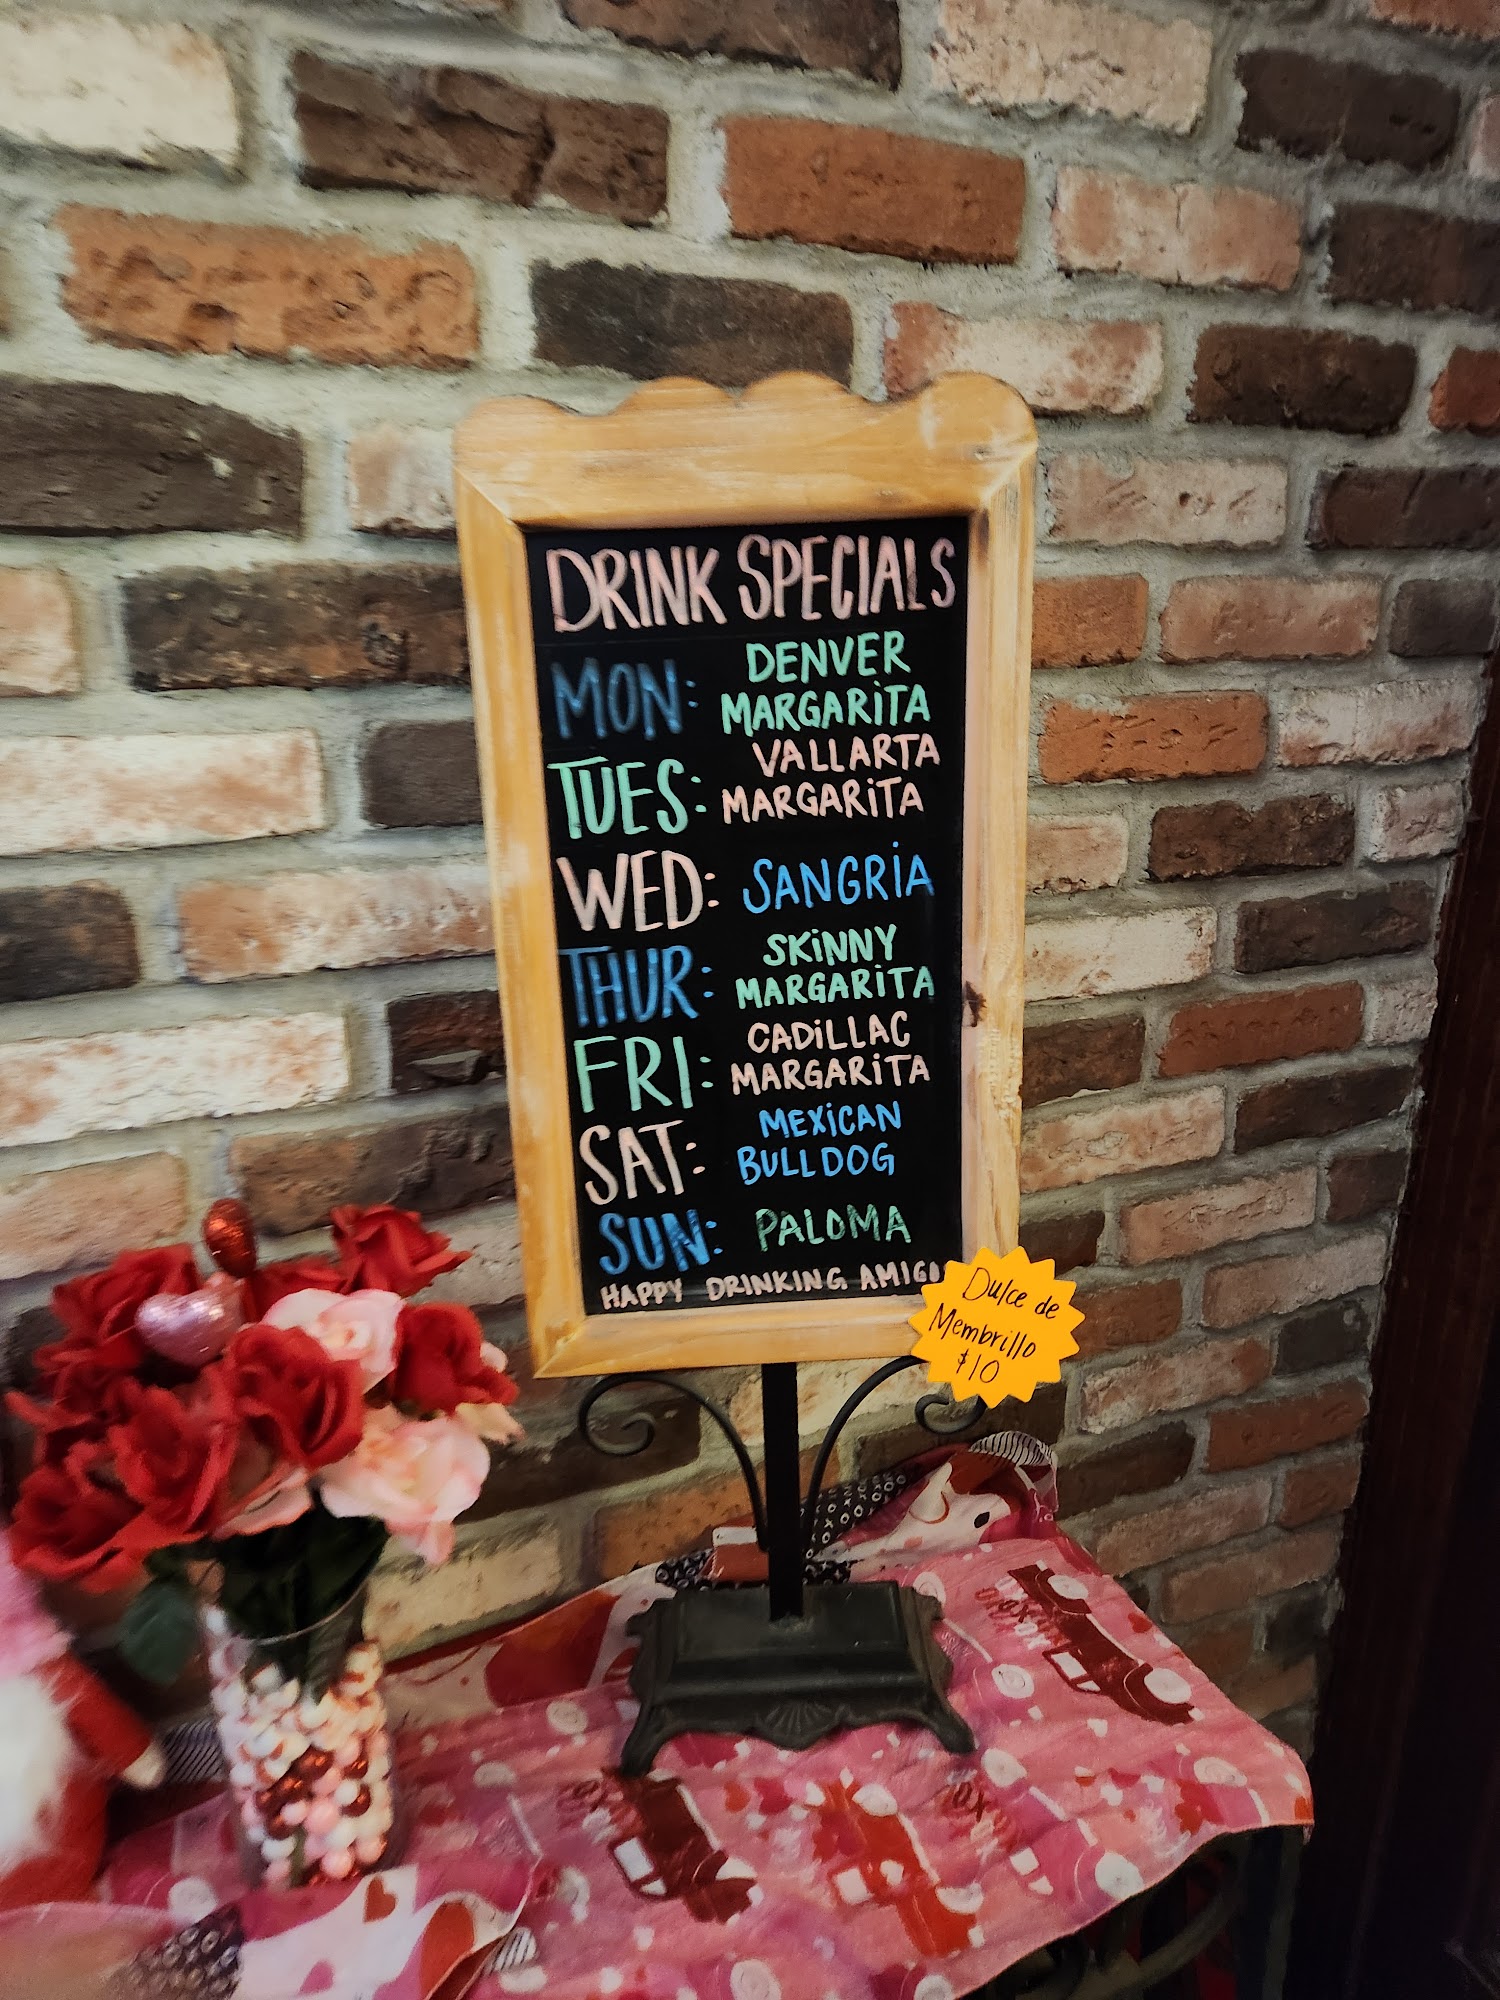 DRINK SPECIALS
MON: DENVER
MARGARITA
TUES: VALLARTA
MARGARITA
WED: SANGRIA
THUR: SKINNY
MARGARITA
FRI: CADILLAC
MARGARITA
SAT: MEXICAN
BULLDOG
SUN: PALOMA
HAPPY DRINKING AMIGO
Dulce de
Membrillo
$10